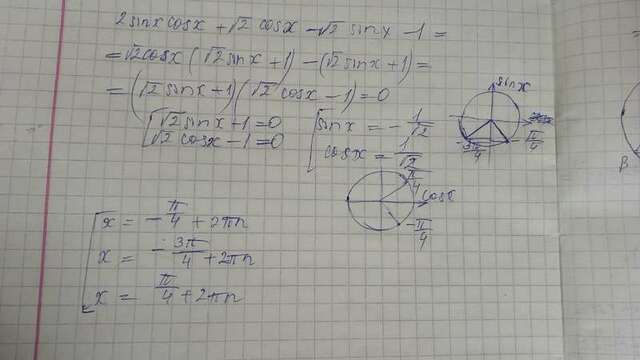 2sinxcosx + √2 cosx - √2 sinx - 1 =
= √2cosx (√2sinx + 1) - (√2sinx + 1) =
= (√2sinx + 1)(√2cosx - 1) = 0
√2sinx + 1 = 0
√2cosx - 1 = 0
sinx = - 1/√2
cosx = 1/√2
sinx
-3π/4
-π/4
π/4
cosx
-π/4
x = - π/4 + 2πn
x = - 3π/4 + 2πn
x = π/4 + 2πn
β